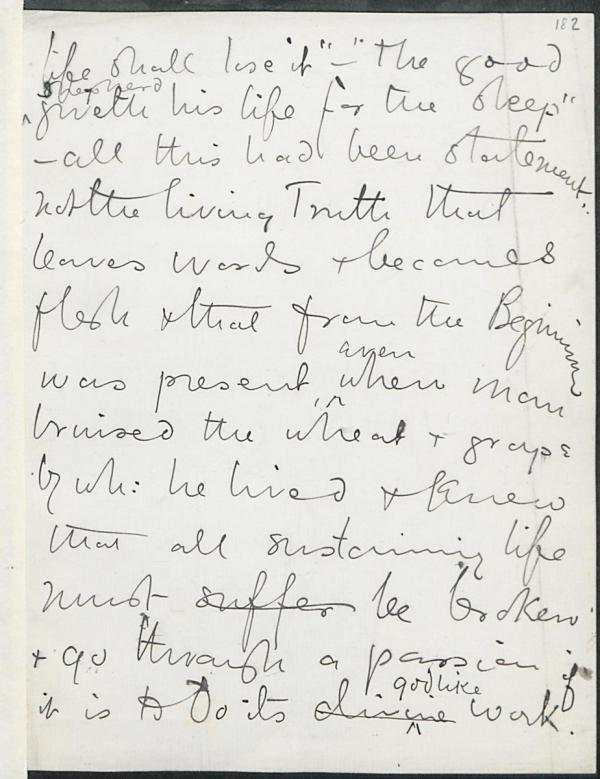 182
life shall lose it" – "the good
shepherd
giveth his life for the sheep"
– all this had been statement:
not the living Truth that
leaves words & becomes
flesh & that from the Beginning
even
was present, when man
bruised the wheat & grape
by wh: he lived & knew
that all sustaining life
must suffer be broken
& go through a passion if
godlike
it is to do its divine work.